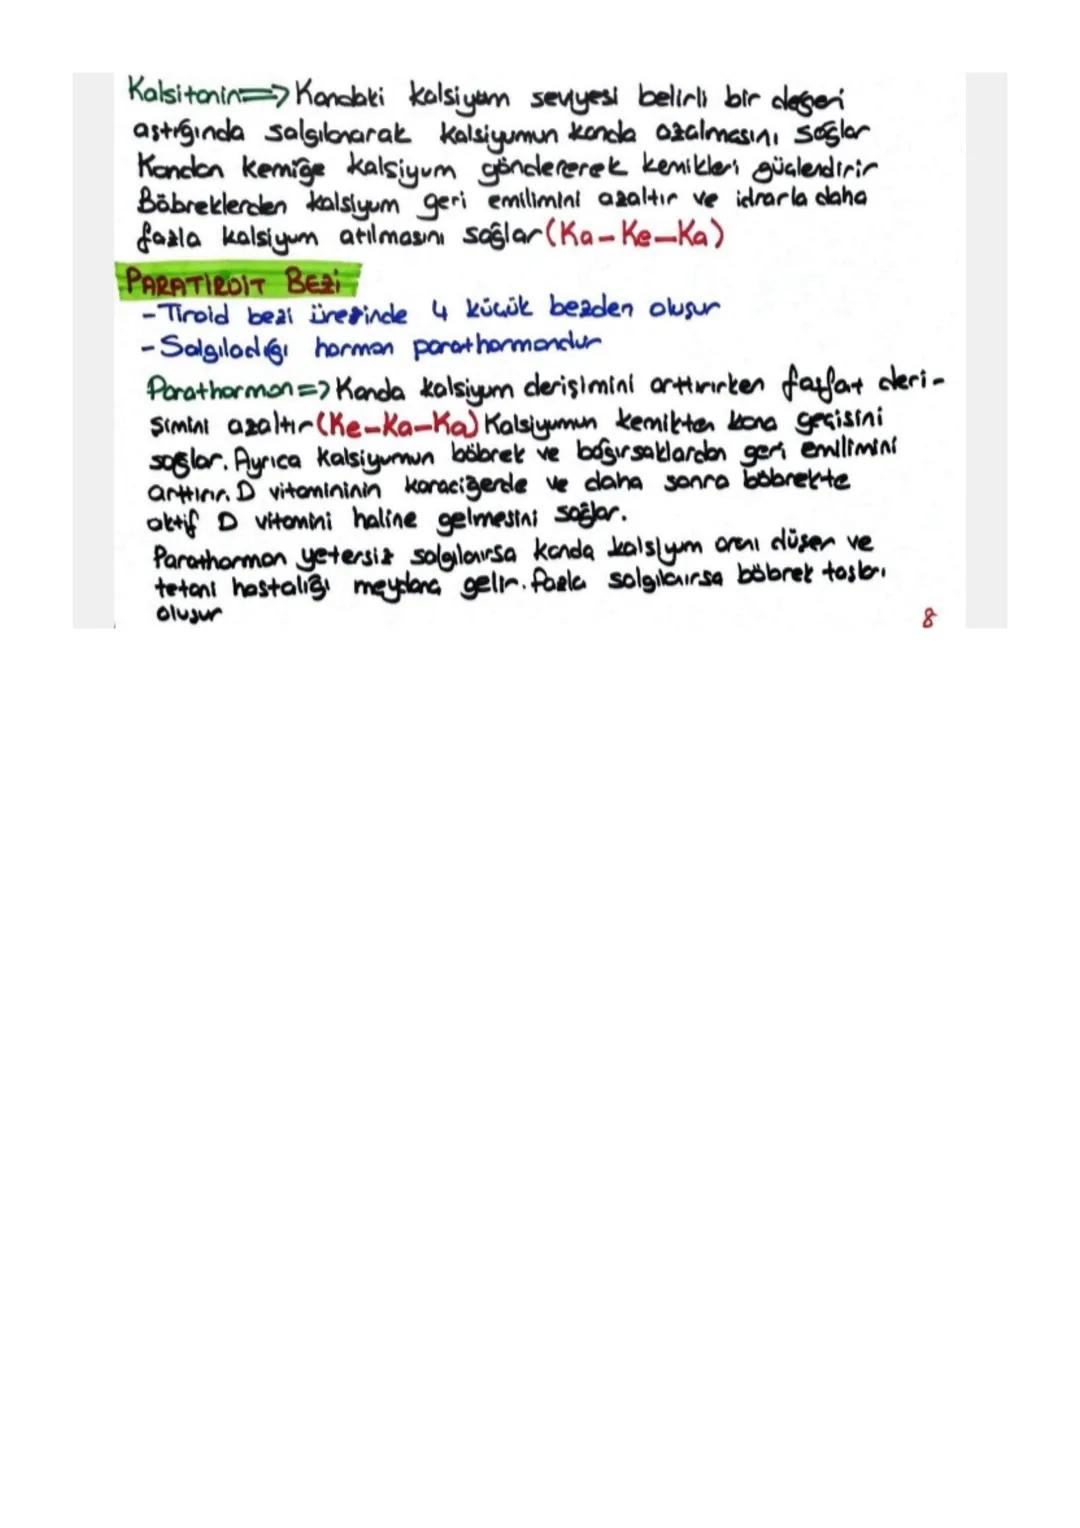 Kalsitonin=> Kandaki kalsiyum seviyesi belirli bir değeri
aştığında salgılanarak kalsiyumun kanda azalmasını sağlar
Kandan kemiğe kalsiyum göndererek kemikleri güçlendirir
Böbreklerden kalsiyum geri emilimini azaltır ve idrarla daha
fazla kalsiyum atılmasını sağlar (Ka-Ke-Ka)
PARATİROİT BEZİ
- Tiroid bezi üzerinde 4 küçük bezden oluşur
- Salgıladığı hormon parathormondur
Parathormon => Kanda kalsiyum derişimini arttırırken fosfat deri-
şimini azaltır (Ke-Ka-Ka) Kalsiyumun kemikten kana geçişini
sağlar. Ayrıca kalsiyumun böbrek ve bağırsaklardan geri emilimini
arttırır. D vitamininin karaciğerde ve daha sonra böbrekte
aktif D vitamini haline gelmesini sağlar.
Parathormon yetersiz salgılanırsa kanda kalsiyum oranı düşer ve
tetani hastalığı meydana gelir. Fazla salgılanırsa böbrek taşları
oluşur
8